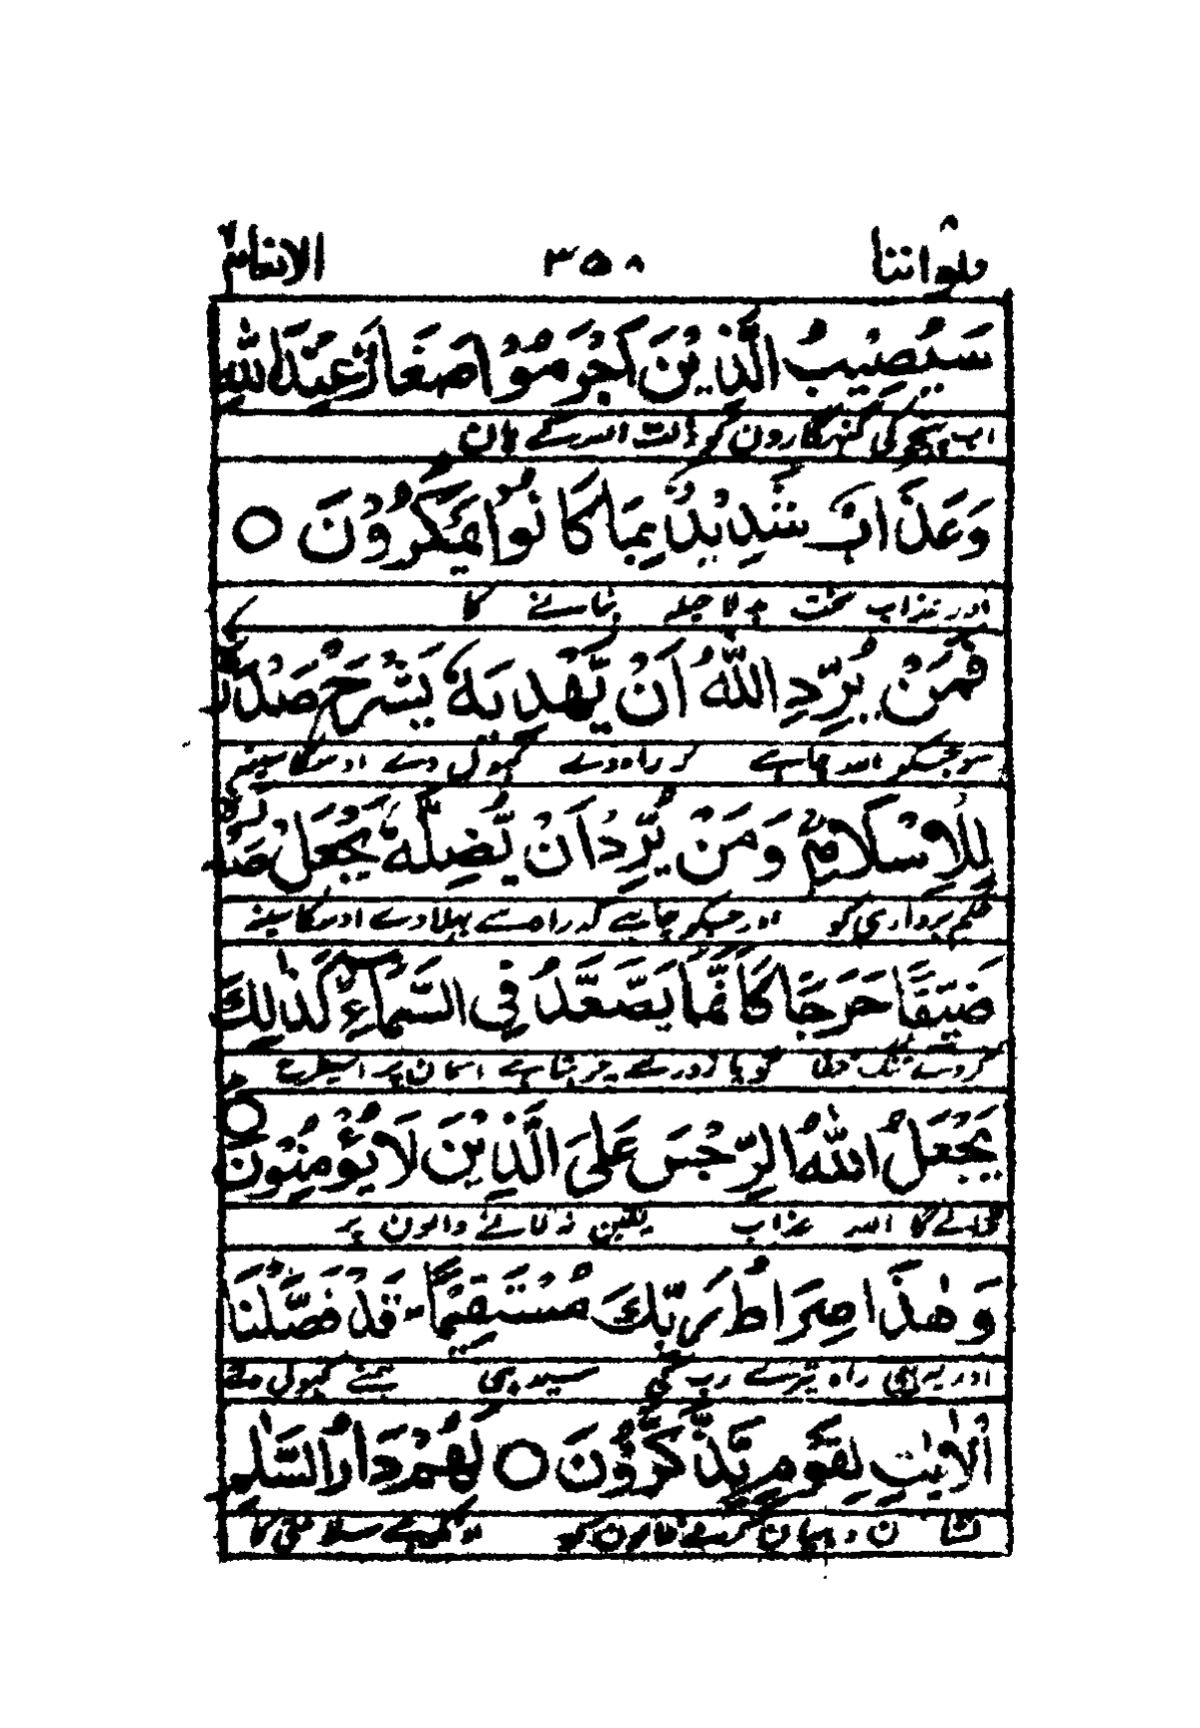 ولواننا ۸ ۳۵۸ الانعام
سَيُصِيْبُ الَّذِيْنَ اَجْرَمُوْا صَغَارٌ عِنْدَ اللّٰهِ
اب پہنچے گی گنہگارون کو ذلت اللہ کے ہان
وَعَذَابٌ شَدِيْدٌۢ بِمَا كَانُوْا يَمْكُرُوْنَ ○
اور عذاب سخت بدلا حیلہ بنانے کا
فَمَنْ يُّرِدِ اللّٰهُ اَنْ يَّهْدِيَهٗ يَشْرَحْ صَدْرَهٗ
سو جسکو اللہ چاہے کہ راہ دے کھول دے اوسکا سینہ
لِلْاِسْلَامِ ۚ وَمَنْ يُّرِدْ اَنْ يُّضِلَّهٗ يَجْعَلْ صَدْرَهٗ
حکم برداری کو اور جسکو چاہے کہ راہ سے بھلا دے اوسکا سینہ
ضَيِّقًا حَرَجًا كَاَنَّمَا يَصَّعَّدُ فِي السَّمَآءِ ؕ كَذٰلِكَ
کر دے تنگ گویا زور سے چڑھتا ہے اسمان پر اسیطرح
يَجْعَلُ اللّٰهُ الرِّجْسَ عَلَى الَّذِيْنَ لَا يُؤْمِنُوْنَ ○
ڈالے گا اللہ عذاب یقین نہ لانے والون پر
وَهٰذَا صِرَاطُ رَبِّكَ مُسْتَقِيْمًا ؕ قَدْ فَصَّلْنَا
اور یہ ہی راہ تیرے رب کی سیدہی ہمنے کھول دئے
الْاٰيٰتِ لِقَوْمٍ يَّذَّكَّرُوْنَ ○ لَهُمْ دَارُ السَّلٰمِ
نشان دہیان کرنے والون کو سلامتی کا